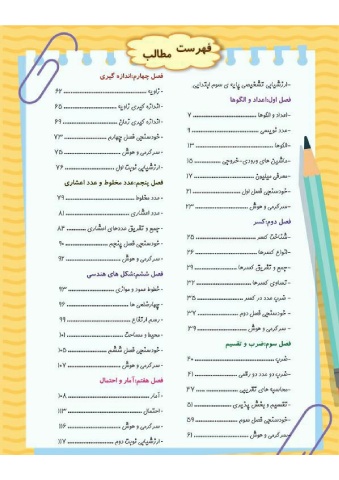 فهرست مطالب
-ارزشیابی تشخیصی پایه ی سوم ابتدایی
فصل اول:اعداد و الگوها
-اعداد و الگوها ........ ۷
-عدد نویسی ........ ۹
-الگوها ........ ۱۳
-ماشین های ورودی-خروجی ........ ۱۵
-معرفی میلیون ........ ۱۷
-خودسنجی فصل اول ........ ۲۱
-سرگرمی و هوش ........ ۲۳
فصل دوم:کسر
-شناخت کسر ........ ۲۵
-انواع کسرها ........ ۲۶
-جمع و تفریق کسرها ........ ۲۹
-تساوی کسرها ........ ۳۲
-ضرب عدد در کسر ........ ۳۵
-خودسنجی فصل دوم ........ ۳۷
-سرگرمی و هوش ........ ۳۹
فصل سوم:ضرب و تقسیم
-ضرب ........ ۴۰
-ضرب دو عدد دو رقمی ........ ۴۱
-محاسبه های تقریبی ........ ۴۷
-تقسیم و بخش پذیری ........ ۵۱
-خودسنجی فصل سوم ........ ۵۹
-سرگرمی و هوش ........ ۶۱
فصل چهارم:اندازه گیری
- زاویه ........ ۶۲
- اندازه گیری زاویه ........ ۶۵
- اندازه گیری زمان ........ ۶۹
- خودسنجی فصل چهارم ........ ۷۳
- سرگرمی و هوش ........ ۷۵
- ارزشیابی نوبت اول ........ ۷۶
فصل پنجم:عدد مخلوط و عدد اعشاری
- عدد مخلوط ........ ۷۹
- عدد اعشاری ........ ۸۱
- جمع و تفریق عددهای اعشاری ........ ۸۴
- خودسنجی فصل پنجم ........ ۹۰
- سرگرمی و هوش ........ ۹۲
فصل ششم:شکل های هندسی
- خطوط عمود و موازی ........ ۹۳
- چهارضلعی ها ........ ۹۶
- رسم ارتفاع ........ ۹۹
- محیط و مساحت ........ ۱۰۱
- خودسنجی فصل ششم ........ ۱۰۵
- سرگرمی و هوش ........ ۱۰۷
فصل هفتم:آمار و احتمال
- آمار ........ ۱۰۸
- احتمال ........ ۱۱۳
- سرگرمی و هوش ........ ۱۱۶
- ارزشیابی نوبت دوم ........ ۱۱۷